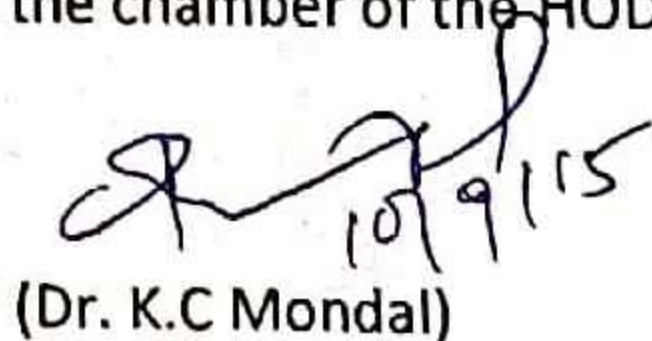 the chamber of the HOD
10/9/15
(Dr. K.C Mondal)